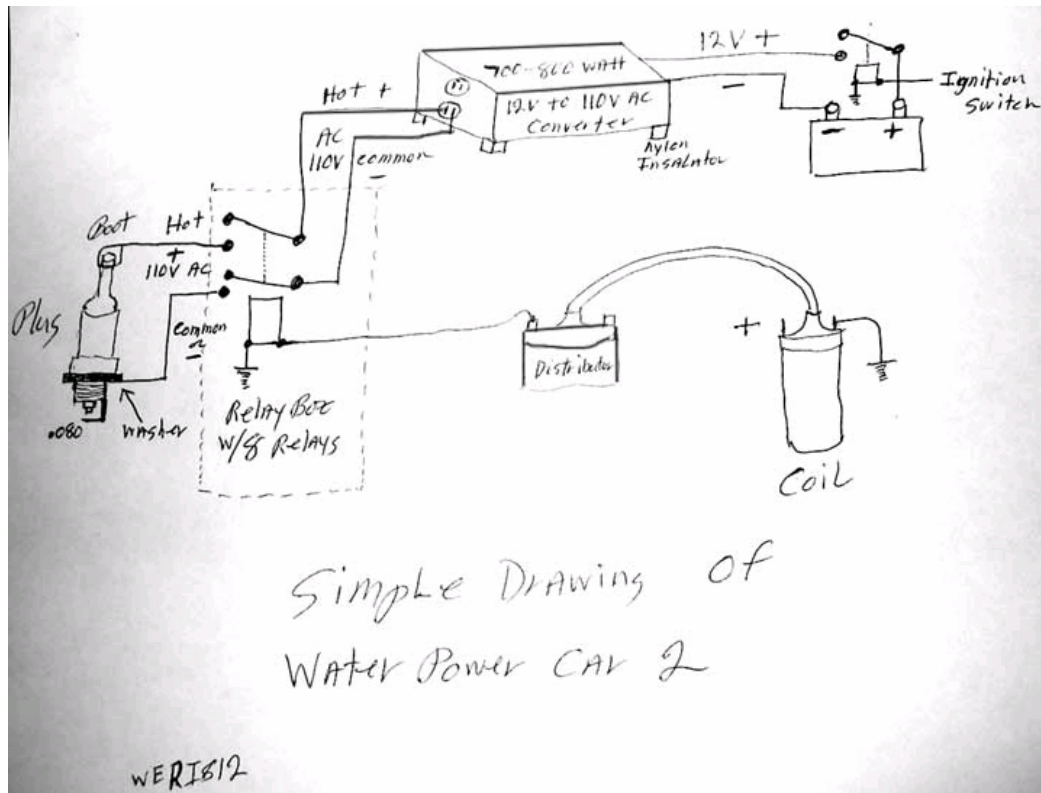 12V +
700-800 WATT
12V to 110V AC
Converter
-
Ignition
Switch
- +
Hot +
AC
110V
common
-
Nylon
Insalator
Boot
Hot
+
110V AC
Plug
common
-
.080
washer
Relay Box
W/8 Relays
Distributor
+
Coil
Simple Drawing of
Water Power Car 2
WERIS12